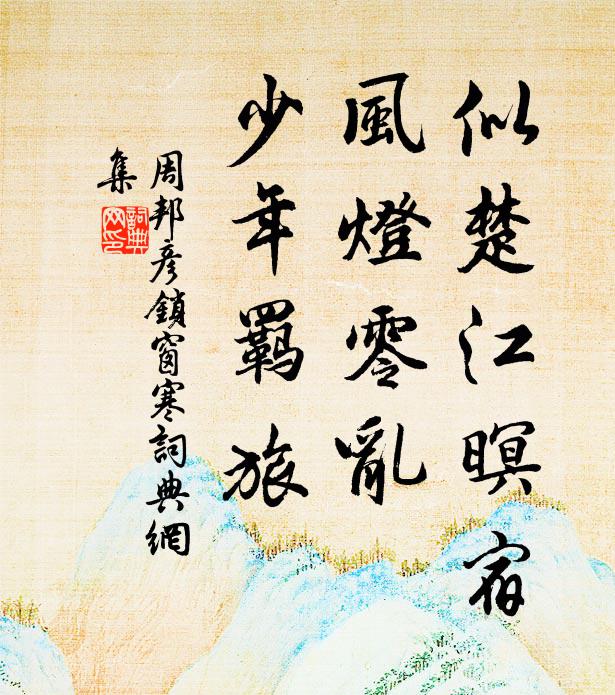 似楚江暝宿
風燈零亂
少年羈旅
周邦彥鎖窗寒詞典網
集
詞典
网印